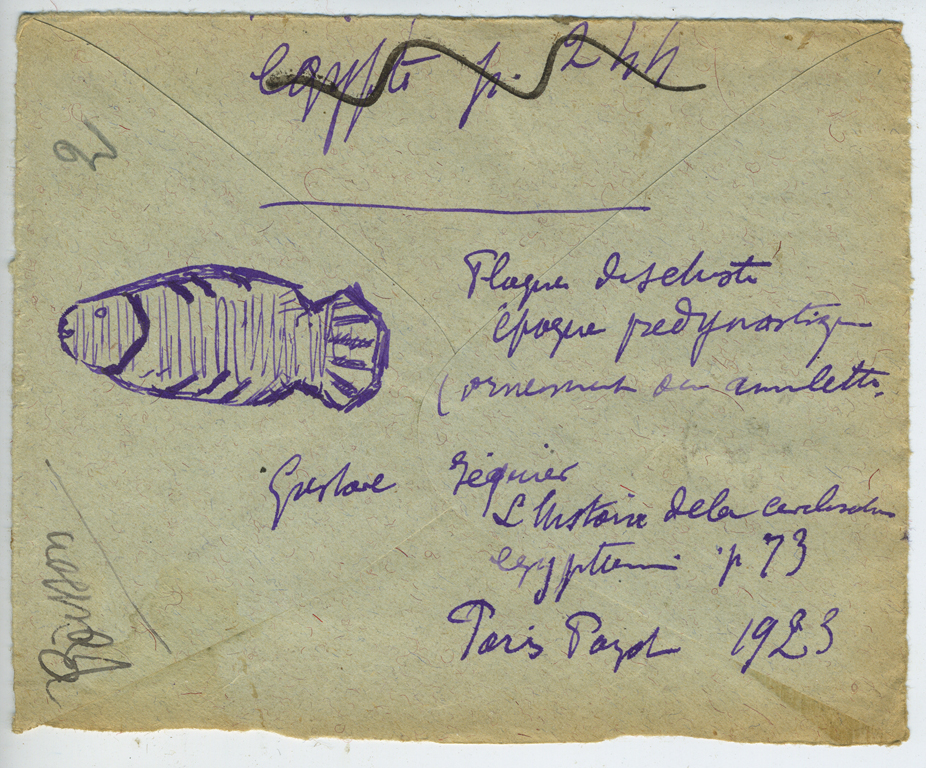 Egypte p. 244
2
Plaque de schiste
époque predynastique
(ornement ou amulette.
Gustave Jéquier
L'histoire de la civilisation
egyptienne p 73
Paris Payot 1923